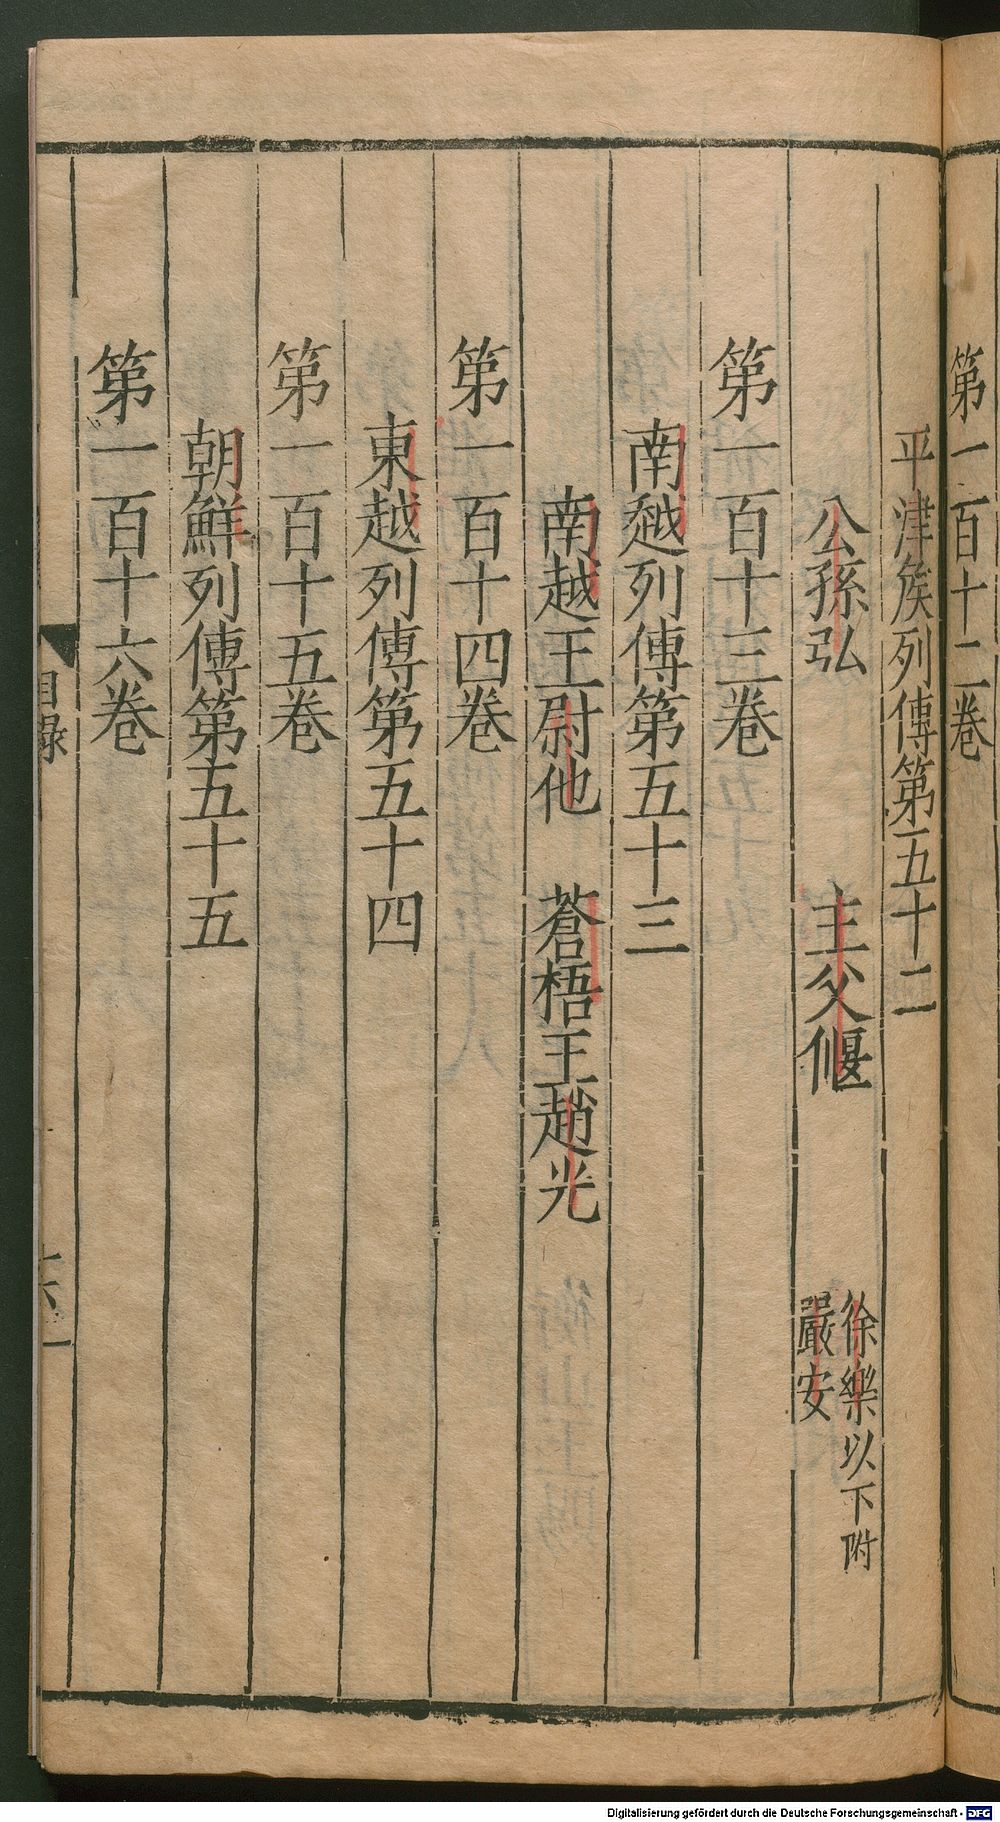 第一百十二卷
平津侯列傳第五十二
公孫弘 主父偃 徐樂以下附
嚴安
第一百十三卷
南越列傳第五十三
南越王尉他 蒼梧王趙光
第一百十四卷
東越列傳第五十四
第一百十五卷
朝鮮列傳第五十五
第一百十六卷
目錄
Digitalisierung gefördert durch die Deutsche Forschungsgemeinschaft - DFG